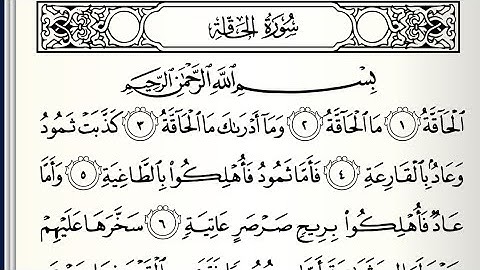 سُورَةُ الْحَاقَّةِ
بِسْمِ اللَّهِ الرَّحْمَٰنِ الرَّحِيمِ
الْحَاقَّةُ ١ مَا الْحَاقَّةُ ٢ وَمَا أَدْرَىٰكَ مَا الْحَاقَّةُ ٣ كَذَّبَتْ ثَمُودُ
وَعَادُۢ بِالْقَارِعَةِ ٤ فَأَمَّا ثَمُودُ فَأُهْلِكُوا۟ بِالطَّاغِيَةِ ٥ وَأَمَّا
عَادٌ فَأُهْلِكُوا۟ بِرِيحٍ صَرْصَرٍ عَاتِيَةٍ ٦ سَخَّرَهَا عَلَيْهِمْ